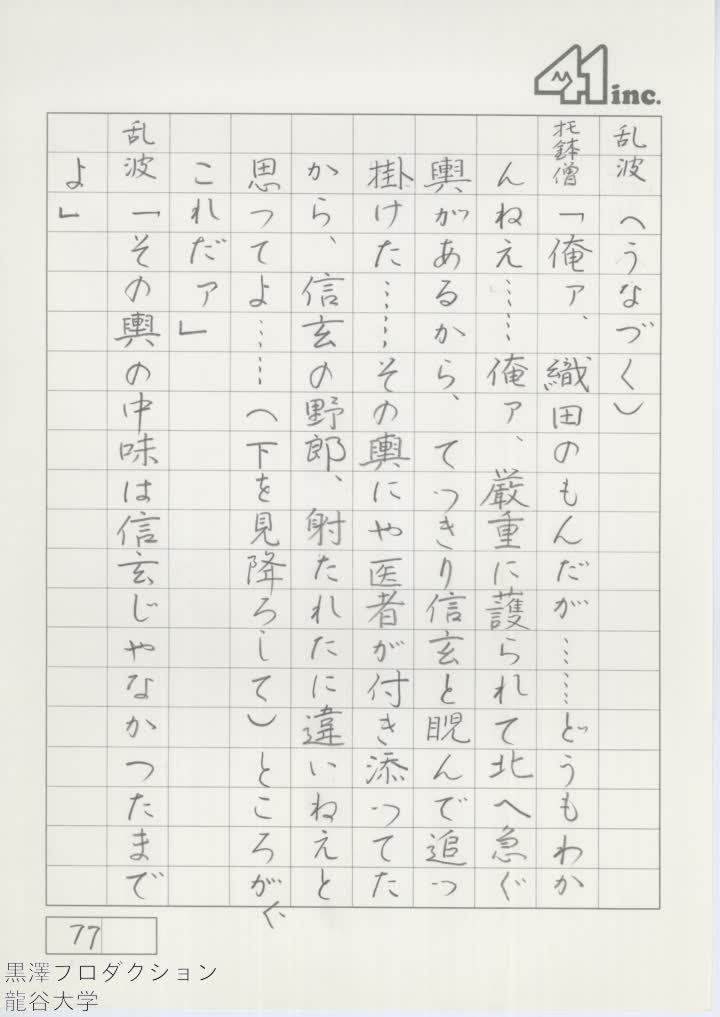 41 inc.
乱波（うなづく）
托鉢僧「俺ァ、織田のもんだが……どうもわか
んねえ……俺ァ、厳重に護られて北へ急ぐ
輿があるから、てっきり信玄と睨んで追っ
掛けた……その輿にや医者が付き添ってた
から、信玄の野郎、射たれたに違いねえと
思ってよ……（下を見降ろして）ところが、
これだァ」
乱波「その輿の中味は信玄じゃなかつたまで
よ」
77
黒澤プロダクション
龍谷大学